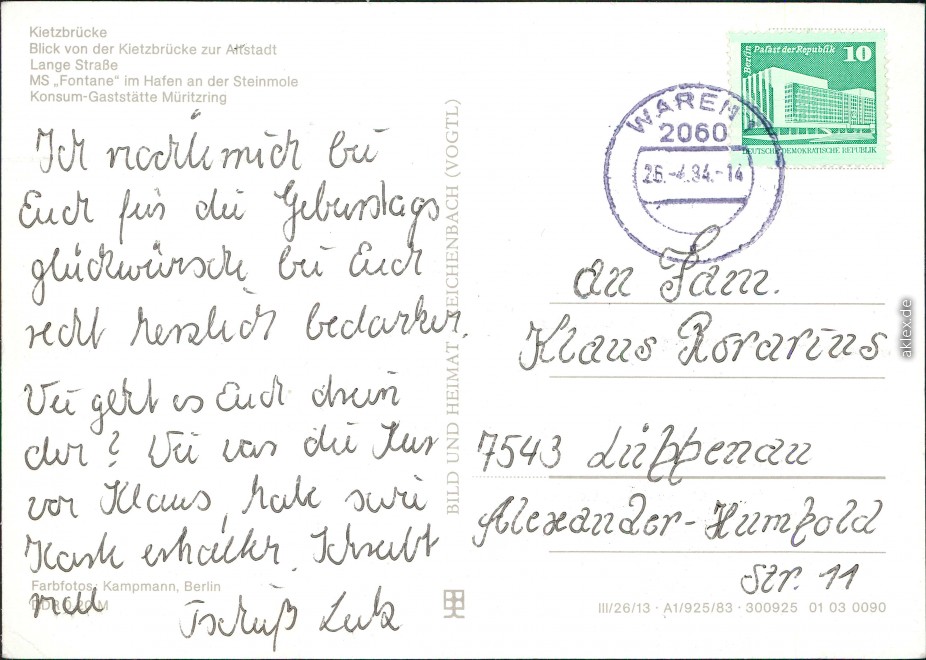 Kietzbrücke
Blick von der Kietzbrücke zur Altstadt
Lange Straße
MS „Fontane“ im Hafen an der Steinmole
Konsum-Gaststätte Müritzring
Ich möchte mich bei
Euch für die Geburstags
glückwünsche bei Euch
recht herzlich bedanken.
Wie geht es Euch drein
der? Wie war die Kur
von Klaus, habe seine
Karte erhalten. Schreibt
mal
Tschüß Lutz
Farbfotos: Kampmann, Berlin
BILD UND HEIMAT REICHENBACH (VOGTL)
Berlin Palast der Republik
10
DEUTSCHE DEMOKRATISCHE REPUBLIK
WAREN 1
2060
26.-4.84.-14
an Fam.
Klaus Rorarius
7543 Lüppenau
Alexander-Humpold
Str. 11
III/26/13 · A1/925/83 · 300925 01 03 0090
aklex.de